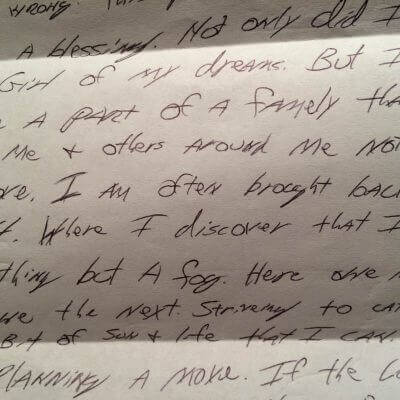 WRONG.
A blessing. Not only did I
Girl of my dreams. But I
A part of A famely tha
Me + others Around Me Not
ore. I Am often brought back
Where I discover that I
thing but A fog. Here one
the Next. Striveing to
Bit of Sun + life that I can.
PLANNING A move. If the